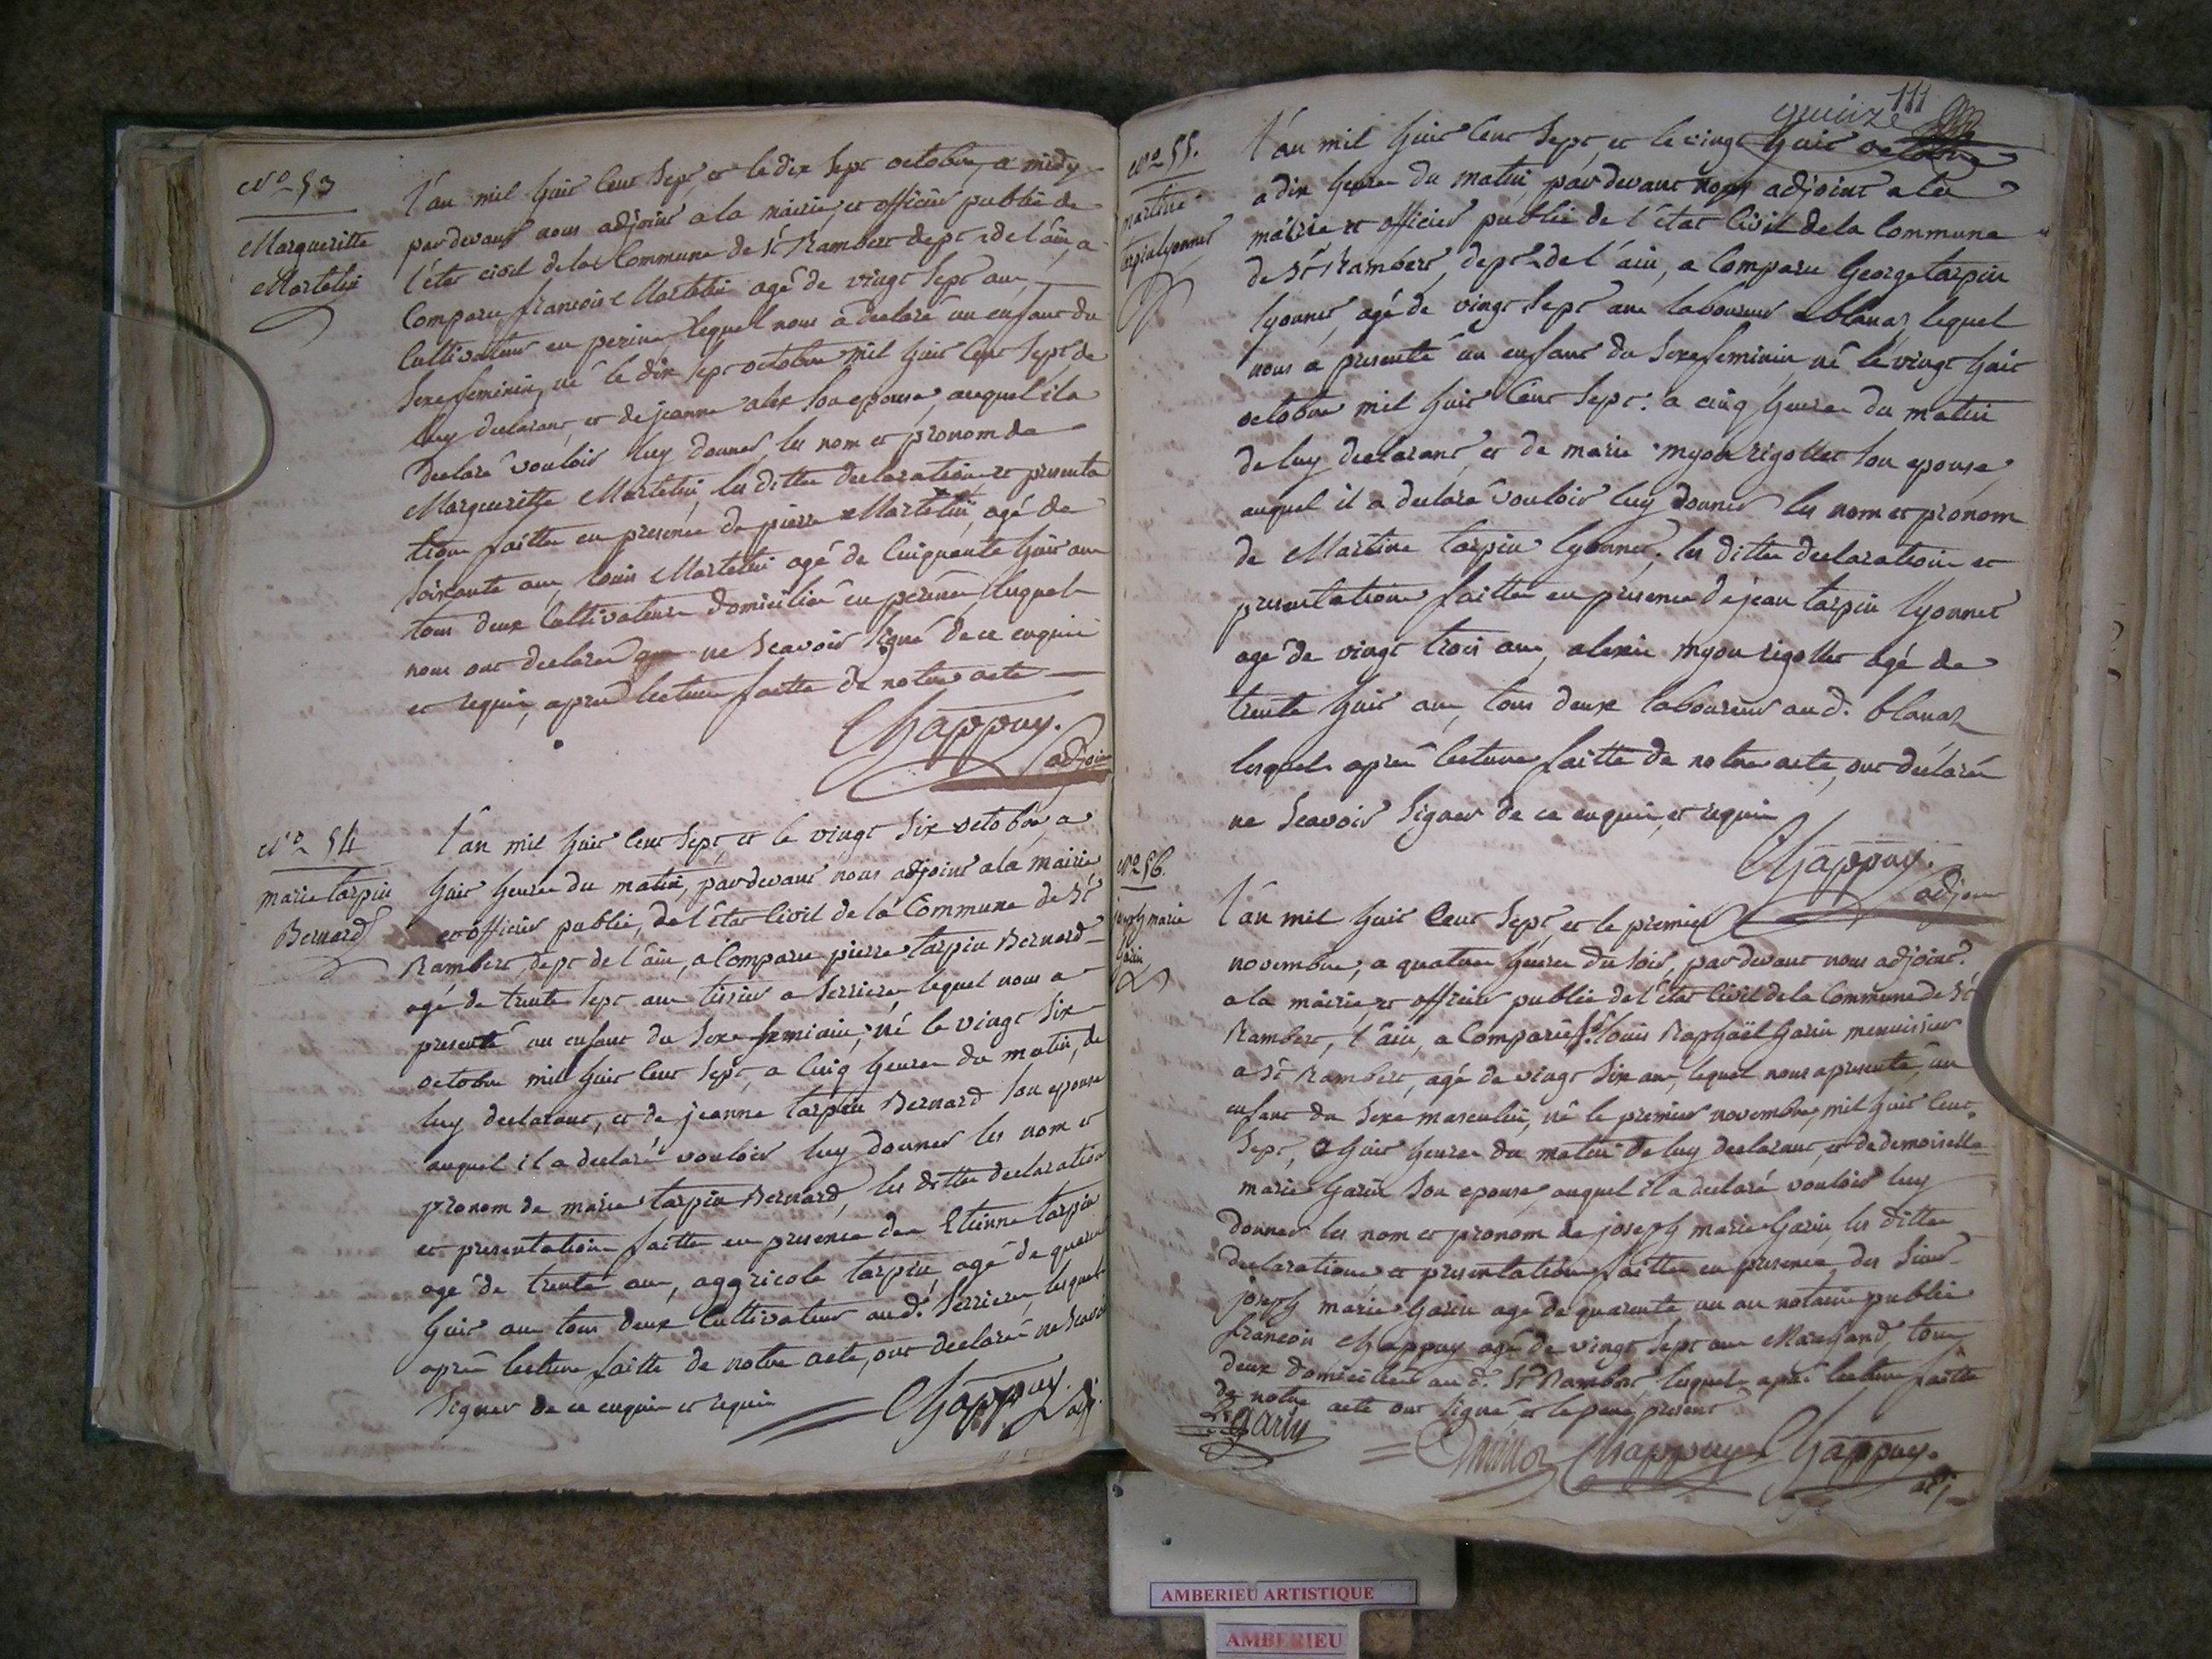 No 53
Margueritte
Martelin
L'an mil huit cent sept, et le dix sept octobre, a midy
pardevant nous adjoint a la mairie, et officier public de
l'état civil de la commune de St Rambert dept de l'ain, a
comparu francois Martelin agé de vingt sept ans,
cultivateur en perine, lequel nous a declaré un enfant du
sexe feminin, né le dix sept octobre mil huit cent sept, de
luy declarant, et de jeanne alex son epouse, auquel il a
declaré vouloir luy donner les nom et pronom de
Margueritte Martelin, les dittes declaration et presenta
tion faittes en presence de pierre Martelin, agé de
soixante ans, louis Martelin agé de cinquante huit ans
tous deux cultivateurs domiciliés en perine, lesquels
nous ont declarés ne scavoir signé de ce enquis
et requis, après lecture faitte de notre acte
Chappuy.
adjoint
No 54
marie tarpin
Bernard
L'an mil huit cent sept, et le vingt six octobre, a
huit heures du matin, pardevant nous adjoint a la mairie
et officier public, de l'état civil de la commune de St
Rambert, dept de l'ain, a comparu pierre tarpin Bernard
agé de trente sept ans tissier a serrieres lequel nous a
presenté un enfant du sexe feminin, né le vingt six
octobre mil huit cent sept, a cinq heures du matin, de
luy declarant, et de jeanne tarpin Bernard son epouse
auquel il a declaré vouloir luy donner les nom et
pronom de marie tarpin Bernard, les dittes declaration
et presentation faittes en presence de Etienne tarpin
agé de trente ans, aggricole tarpin, agé de quarante
huit ans tous deux cultivateurs aud. serrieres, lesquels
après lecture faitte de notre acte, ont declarés ne scavoir
signer de ce enquis et requis
Chappuy. adj.
quinze 111
No 55.
martine
tarpin lyonnet
L'an mil huit cent sept et le vingt huit octobre
a dix heures du matin, pardevant nous adjoint a la
mairie et officier public de l'état civil de la commune
de St Rambert, dept de l'ain, a comparu George tarpin
lyonnet, agé de vingt sept ans laboureur a blanaz, lequel
nous a presenté un enfant du sexe feminin né le vingt huit
octobre mil huit cent sept. a cinq heures du matin
de luy declarant et de marie myon rigollet son epouse,
auquel il a declaré vouloir luy donner les nom et pronom
de Martine tarpin lyonnet, les dittes declaration et
presentation faittes en presence de jean tarpin lyonnet
agé de vingt trois ans, alexis myon rigollet agé de
trente huit ans, tous deux laboureurs aud. blanaz
lesquels après lecture faitte de notre acte, ont déclarés
ne scavoir signer de ce enquis, et requis
Chappuy.
adjoint
No 56.
joseph marie
Garin
L'an mil huit cent sept et le premier
novembre, a quatre heures du soir, pardevant nous adjoint
a la mairie, et officier public de l'état civil de la commune de St
Rambert, l'ain, a comparu Sr. louis Raphaël Garin menuisier
a St Rambert, agé de vingt six ans, lequel nous a presenté, un
enfant du sexe masculin, né le premier novembre, mil huit cent
sept, a huit heures du matin de luy declarant, et de demoiselle
marie Garin son epouse auquel il a declaré vouloir luy
donner les nom et pronom de joseph marie Garin, les dittes
declaration et presentation faittes en presence des sieurs
joseph marie Garin agé de quarante un an notaire public
francois Chappuy agé de vingt sept ans Marchand, tous
deux domiciliés aud. St Rambert, lesquels après lecture faitte
de notre acte ont signé et le pere present
Garin
Chappuy Chappuy.
adj.
AMBERIEU ARTISTIQUE
AMBERIEU